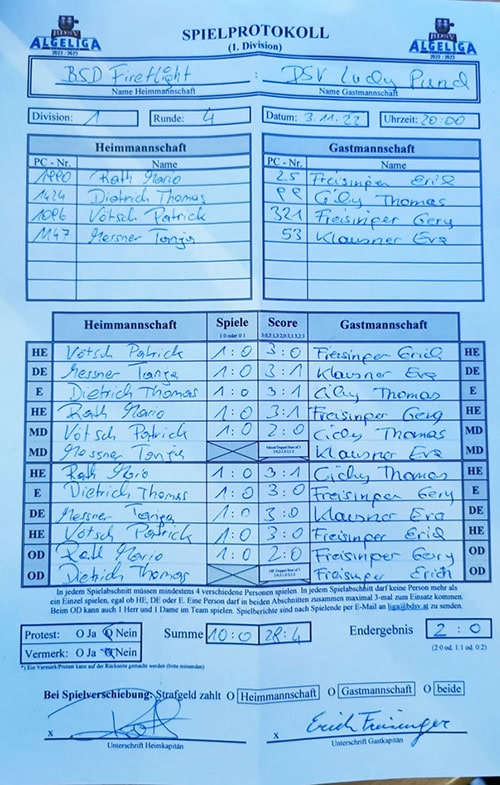 BDSV
ALGELIGA
2022 / 2023
SPIELPROTOKOLL
(1. Division)
BDSV
ALGELIGA
2022 / 2023
BSD Fireflight : DSV Lucky Pund
Name Heimmannschaft Name Gastmannschaft
Division: 1 Runde: 4 Datum: 3.11.22 Uhrzeit: 20:00
Heimmannschaft Gastmannschaft
PC - Nr. Name PC - Nr. Name
1990 Rath Mario 25 Freisinger Erich
1424 Dietrich Thomas 99 Cihy Thomas
1096 Vötsch Patrick 321 Freisinger Gery
1147 Messner Tanja 53 Klausner Eva
Heimmannschaft Spiele Score Gastmannschaft
1:0 oder 0:1
HE Vötsch Patrick 1:0 3:0 Freisinger Erich HE
DE Messner Tanja 1:0 3:1 Klausner Eva DE
E Dietrich Thomas 1:0 3:1 Cihy Thomas E
HE Rath Mario 1:0 3:1 Freisinger Gery HE
MD Vötsch Patrick 1:0 2:0 Cihy Thomas MD
MD Messner Tanja Klausner Eva MD
HE Rath Mario 1:0 3:1 Cihy Thomas HE
E Dietrich Thomas 1:0 3:0 Freisinger Gery E
DE Messner Tanja 1:0 3:0 Klausner Eva DE
HE Vötsch Patrick 1:0 3:0 Freisinger Erich HE
OD Rath Mario 1:0 2:0 Freisinger Gery OD
OD Dietrich Thomas Freisinger Erich OD
In jedem Spielabschnitt müssen mindestens 4 verschiedene Personen spielen. In jedem Spielabschnitt darf keine Person mehr als
ein Einzel spielen, egal ob HE, DE oder E. Eine Person darf in beiden Abschnitten zusammen maximal 3-mal zum Einsatz kommen.
Beim OD kann auch 1 Herr und 1 Dame im Team spielen. Spielberichte sind nach Spielende per E-Mail an liga@bdsv.at zu senden.
Protest: O Ja O Nein Summe 10:0 28:4 Endergebnis 2:0
Vermerk: O Ja O Nein (2:0 od. 1:1 od. 0:2)
*) Ein Vermerk/Protest kann auf der Rückseite gemacht werden (bitte mitsenden)
Bei Spielverschiebung: Strafgeld zahlt O Heimmannschaft O Gastmannschaft O beide
x x Erich Freisinger
Unterschrift Heimkapitän Unterschrift Gastkapitän